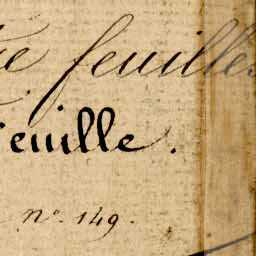 feuilles
feuille.
n.º 149.